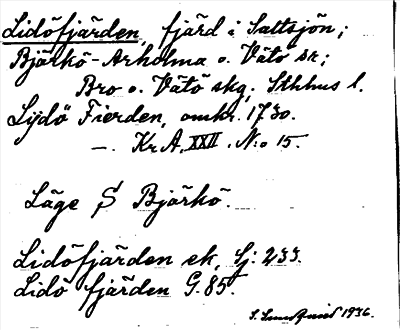 Lidöfjärden, fjärd i Saltsjön;
Björkö-Arholma o. Vätö sn;
Bro o. Vätö skg, Sthlms l.
Lijdö Fierden, omkr. 1730.
—. Kr. A. XXII. N:o 15.
Läge S Björkö.
Lidöfjärden ek. Gj: 233.
Lidö fjärden G. 85.
1936.